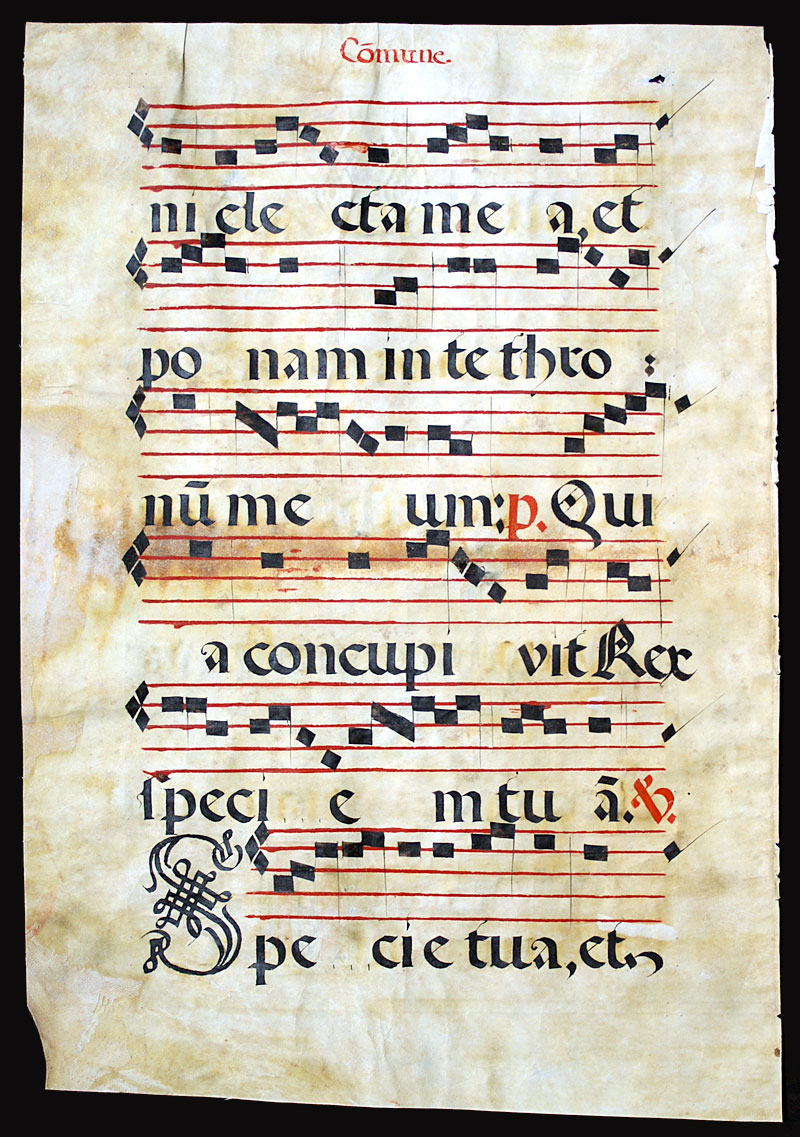 Cōmune.
ni ele cta me a, et
po nam in te thro :
nū me um: p. Qui
a concupi vit Rex
speci e m tu ā. ℣.
Spe cie tua, et